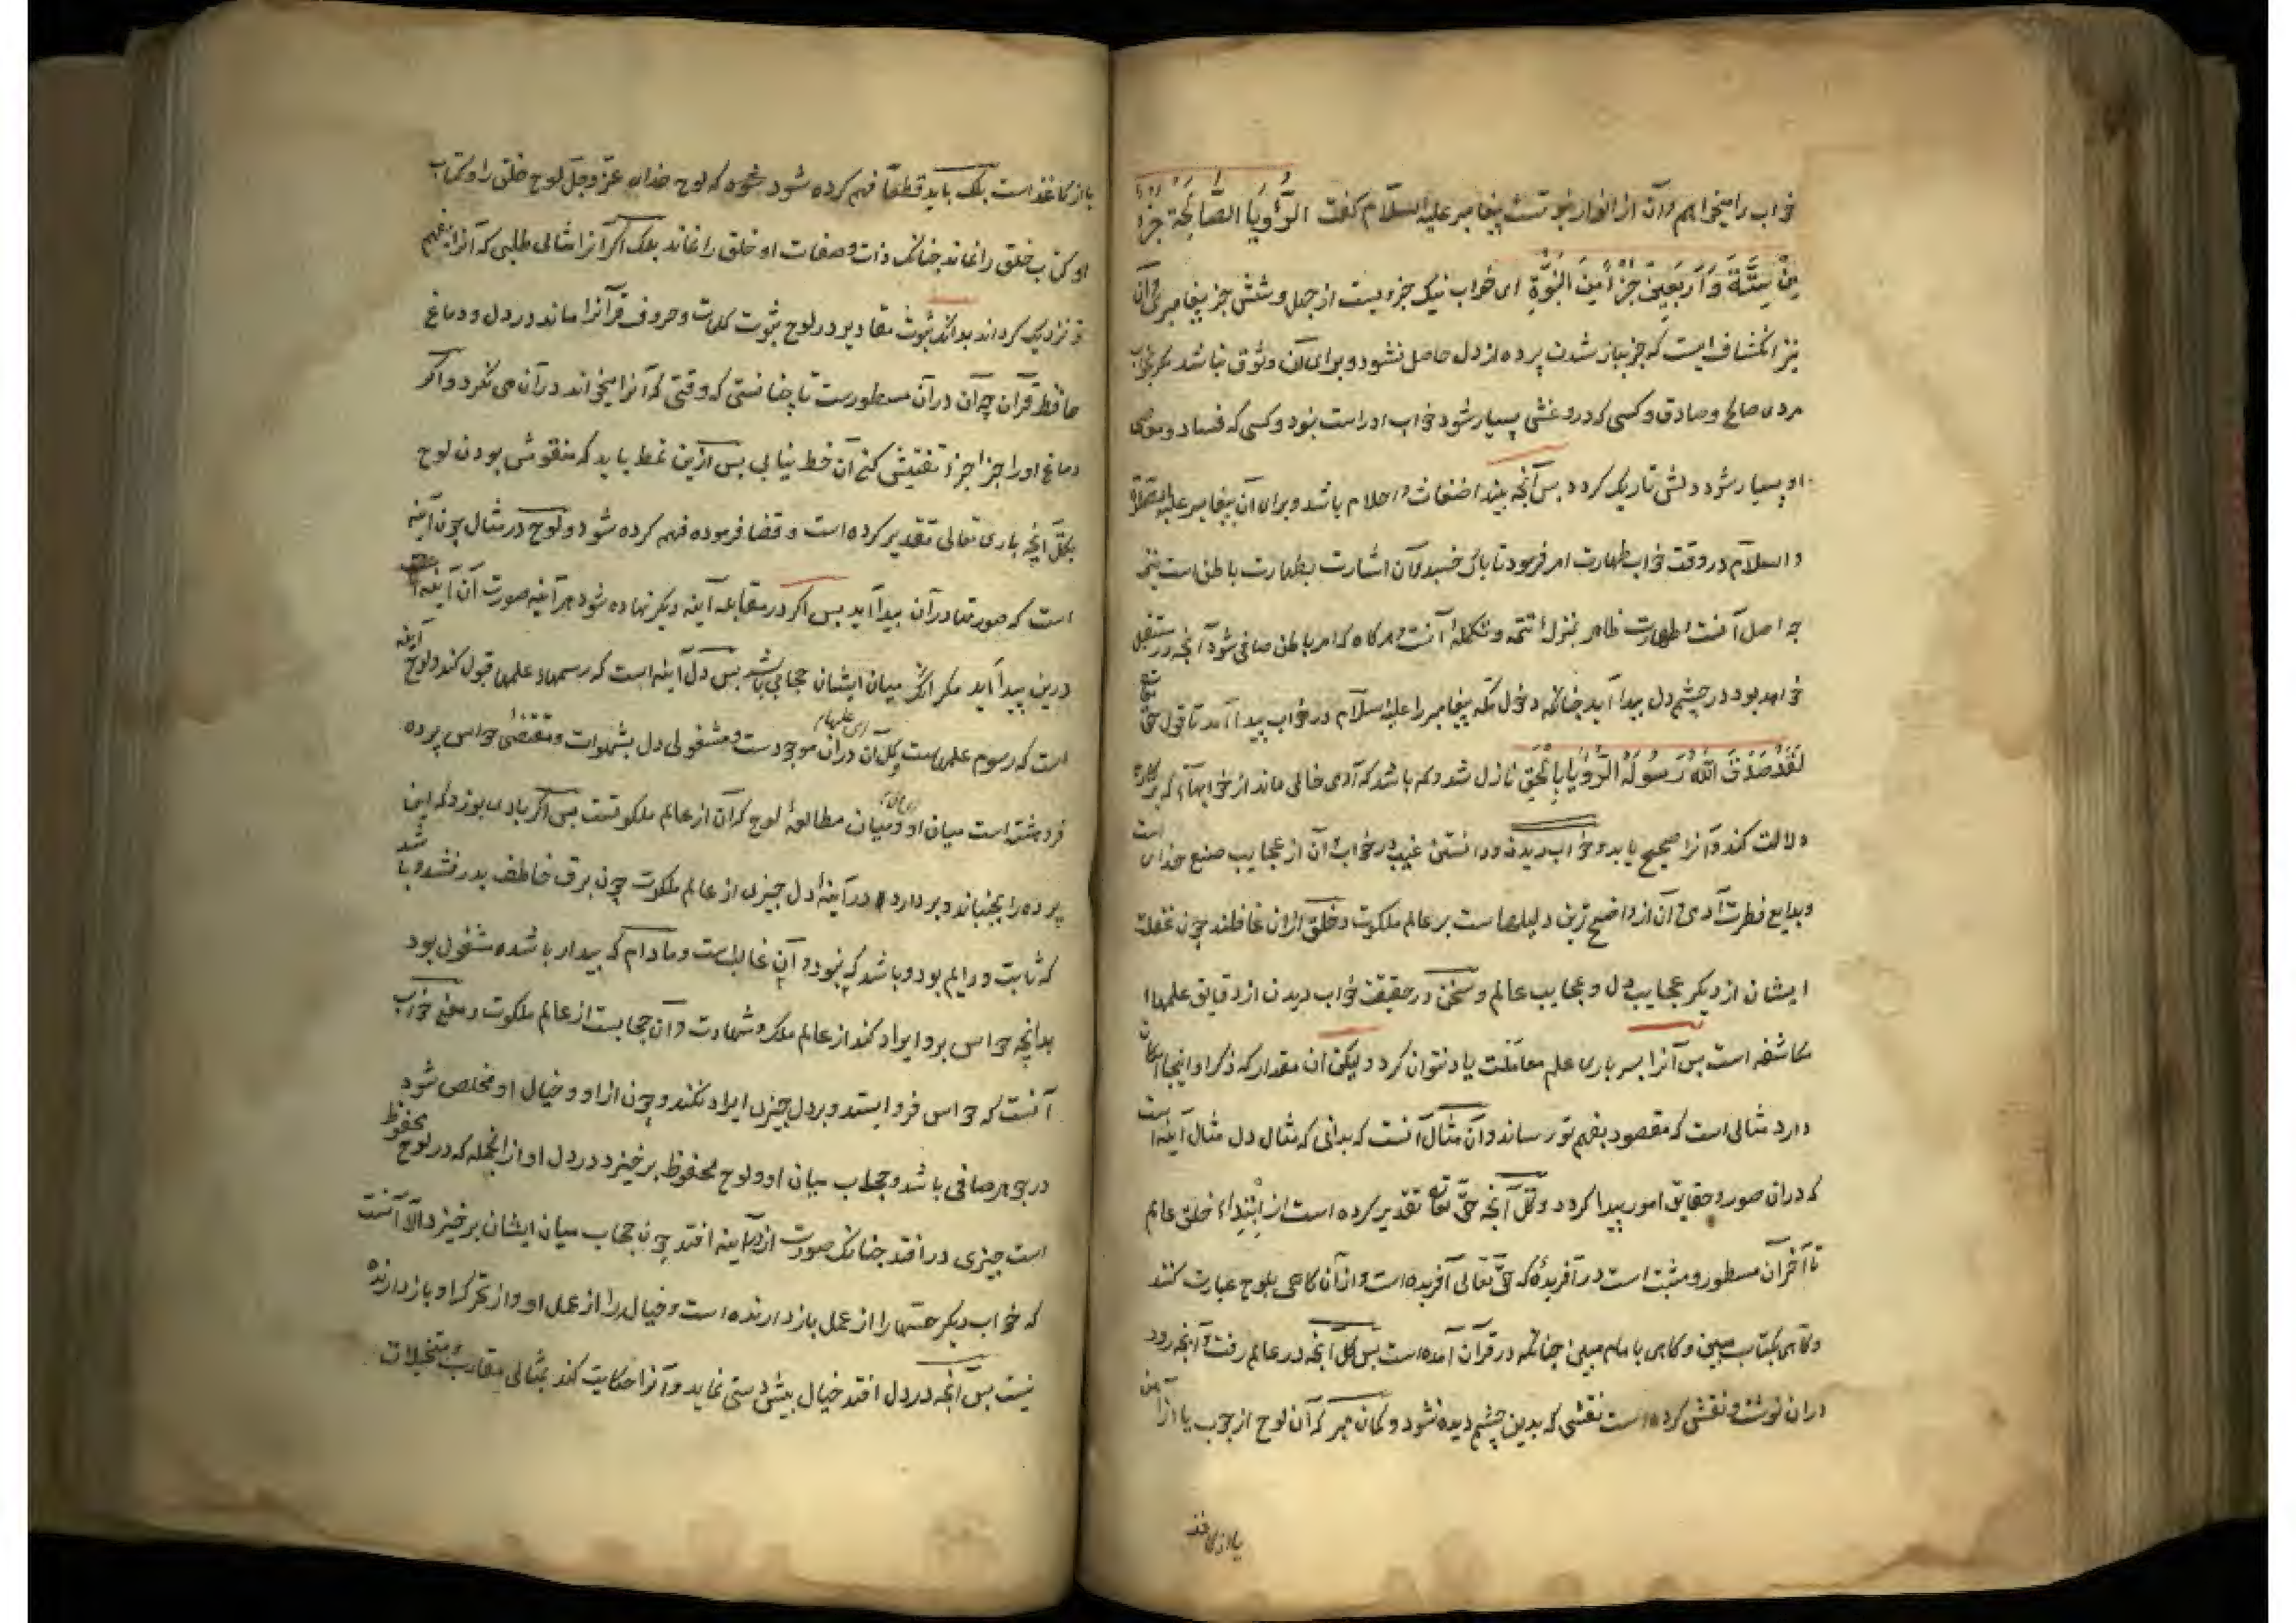 خواب را میخواهم و آن از انوار نبوتست پیغامبر علیه السلام گفت الرُّؤْیَا الصَّالِحَةُ جُزْءٌ
مِنْ سِتَّةٍ وَ أَرْبَعِینَ جُزْءًا مِنَ النُّبُوَّةِ ای خواب نیک جزویست از چهل و شش جز پیغامبری و آن
نیز انکشاف است که جز بباز شدن پرده از دل حاصل نشود و برای آن وثوق نباشد مگر بخواب
مردی صالح و صادق و کسی که دروغش بسیار شود خواب او راست نبود و کسی که فساد و معاصی
او بسیار شود دلش تاریک گردد پس آنچه بیند اضغاث و احلام باشد و برای آن پیغامبر علیه الصلوة
و السلام در وقت خواب طهارت امر فرمود تا پاک خسبد و آن اشارت بطهارت باطن است نیز
چه اصل آنست و طهارت ظاهر بمنزلهٔ تتمه و تکملهٔ آنست و هر گاه که امر باطن صافی شود آنچه در مستقبل
خواهد بود در چشم دل پیدا آید چنانکه دخول مکه پیغامبر را علیه السلام در خواب پیدا آمد تا قول حق تعالی
لَقَدْ صَدَقَ اللهُ رَسُولَهُ الرُّؤْیَا بِالْحَقِّ نازل شد و کم باشد که آدمی خالی ماند از خوابهایی که بر کارها
دلالت کند و آنرا صحیح یابد و خواب دیدن و دانستن غیب در خواب آن از عجایب صنع خدای است
و بدایع فطرت آدمی و آن از واضح ترین دلیلها ست بر عالم ملکوت و خلق ازان غافلند چون غفلت
ایشان از دیگر عجایب دل و عجایب عالم و سخن در حقیقت خواب دیدن از دقایق علمهاء
مکاشفه است پس آنرا بسر باری علم معاملت یاد نتوان کرد ولیکن آن مقدار که ذکر او اینجا امکان
دارد مثالی است که مقصود بفهم تو رساند و آن مثال آنست که بدانی که مثال دل مثال آینه است
که دران صور و حقایق امور پیدا گردد و کل آنچه حق تعالی تقدیر کرده است از ابتداء خلق عالم
تا آخر آن مسطور و مثبت است در آفریدهٔ که حق تعالی آفریده است و ازان گاهی بلوح عبارت کنند
و گاهی بکتاب مبین و گاهی بامام مبین چنانکه در قرآن آمده است پس کل آنچه در عالم رفت و آنچه رود
دران نوشته و نقش کرده است نقشی که بدین چشم دیده نشود و گمان مبر که آن لوح از چوب یا از آهن
یا از کاغذ
یا از کاغذ است بلک باید قطعًا فهم کرده شود که لوح خدای عزّ و جلّ لوح خلق را و کتاب
او کتاب خلق را نماند چنانک ذات و صفات او خلق را نماند بلک اگر آنرا مثالی طلبی که آنرا بفهم
تو نزدیک گرداند بدانک ثبوت مقادیر در لوح ثبوت کلمات و حروف قرآنرا ماند در دل و دماغ
حافظ قرآن چه آن درآن مسطورست تا چنانستی که وقتی که آنرا میخواند درآن می نگرد و اگر
دماغ او را جزءًا جزءًا تفتیش کنی آن خط نیابی پس ازین نمط باید که منقوش بودن لوح
بکلّ آنچه باری تعالی تقدیر کرده است و قضا فرموده فهم کرده شود و لوح در مثال چون آینه
است که صورتها درآن پیدا آید پس اگر در مقابله آینه دیگر نهاده شود هر آینه صورت آن آینه
درین پیدا آید مگر آنک میان ایشان حجابی باشد پس دل آینه است که رسمهاء علمها قبول کند و لوح آینه
است که رسوم علمهاست و کل آن دران موجودست و مشغولی دل بشهوات و مقتضا حواس پرده
ای علمها
فروهشته است میان او و میان مطالعهٔ لوح که آن از عالم ملکوتست پس اگر بادی بوزد که این
پرده را بجنباند و بردارد در آینهٔ دل چیزی از عالم ملکوت چون برق خاطف بدرفشد و باشد
که ثابت و دایم بود و باشد که نبود و آن غالب است و مادام که بیدار باشد مشغول بود
بدآنچه حواس برو ایراد کند از عالم ملک و شهادت و آن حجابیست از عالم ملکوت و معنی خواب
آنست که حواس فرو ایستد و بر دل چیزی ایراد نکند و چون از او و خیال او مخلص شود
در جوهر صافی باشد و حجاب میان او و لوح محفوظ برخیزد در دل او از آنجمله که در لوح محفوظ
است چیزی در افتد چنانک صورت از آینه در آینه افتد چون حجاب میان ایشان برخیزد الا آنست
که خواب دیگر حسّها را از عمل باز دارنده است و خیال را از عمل او و از تحرک او باز دارنده
نیست پس آنچه در دل افتد خیال پیش دستی نماید و آنرا حکایت کند بمثالی مقارب و متخیلات